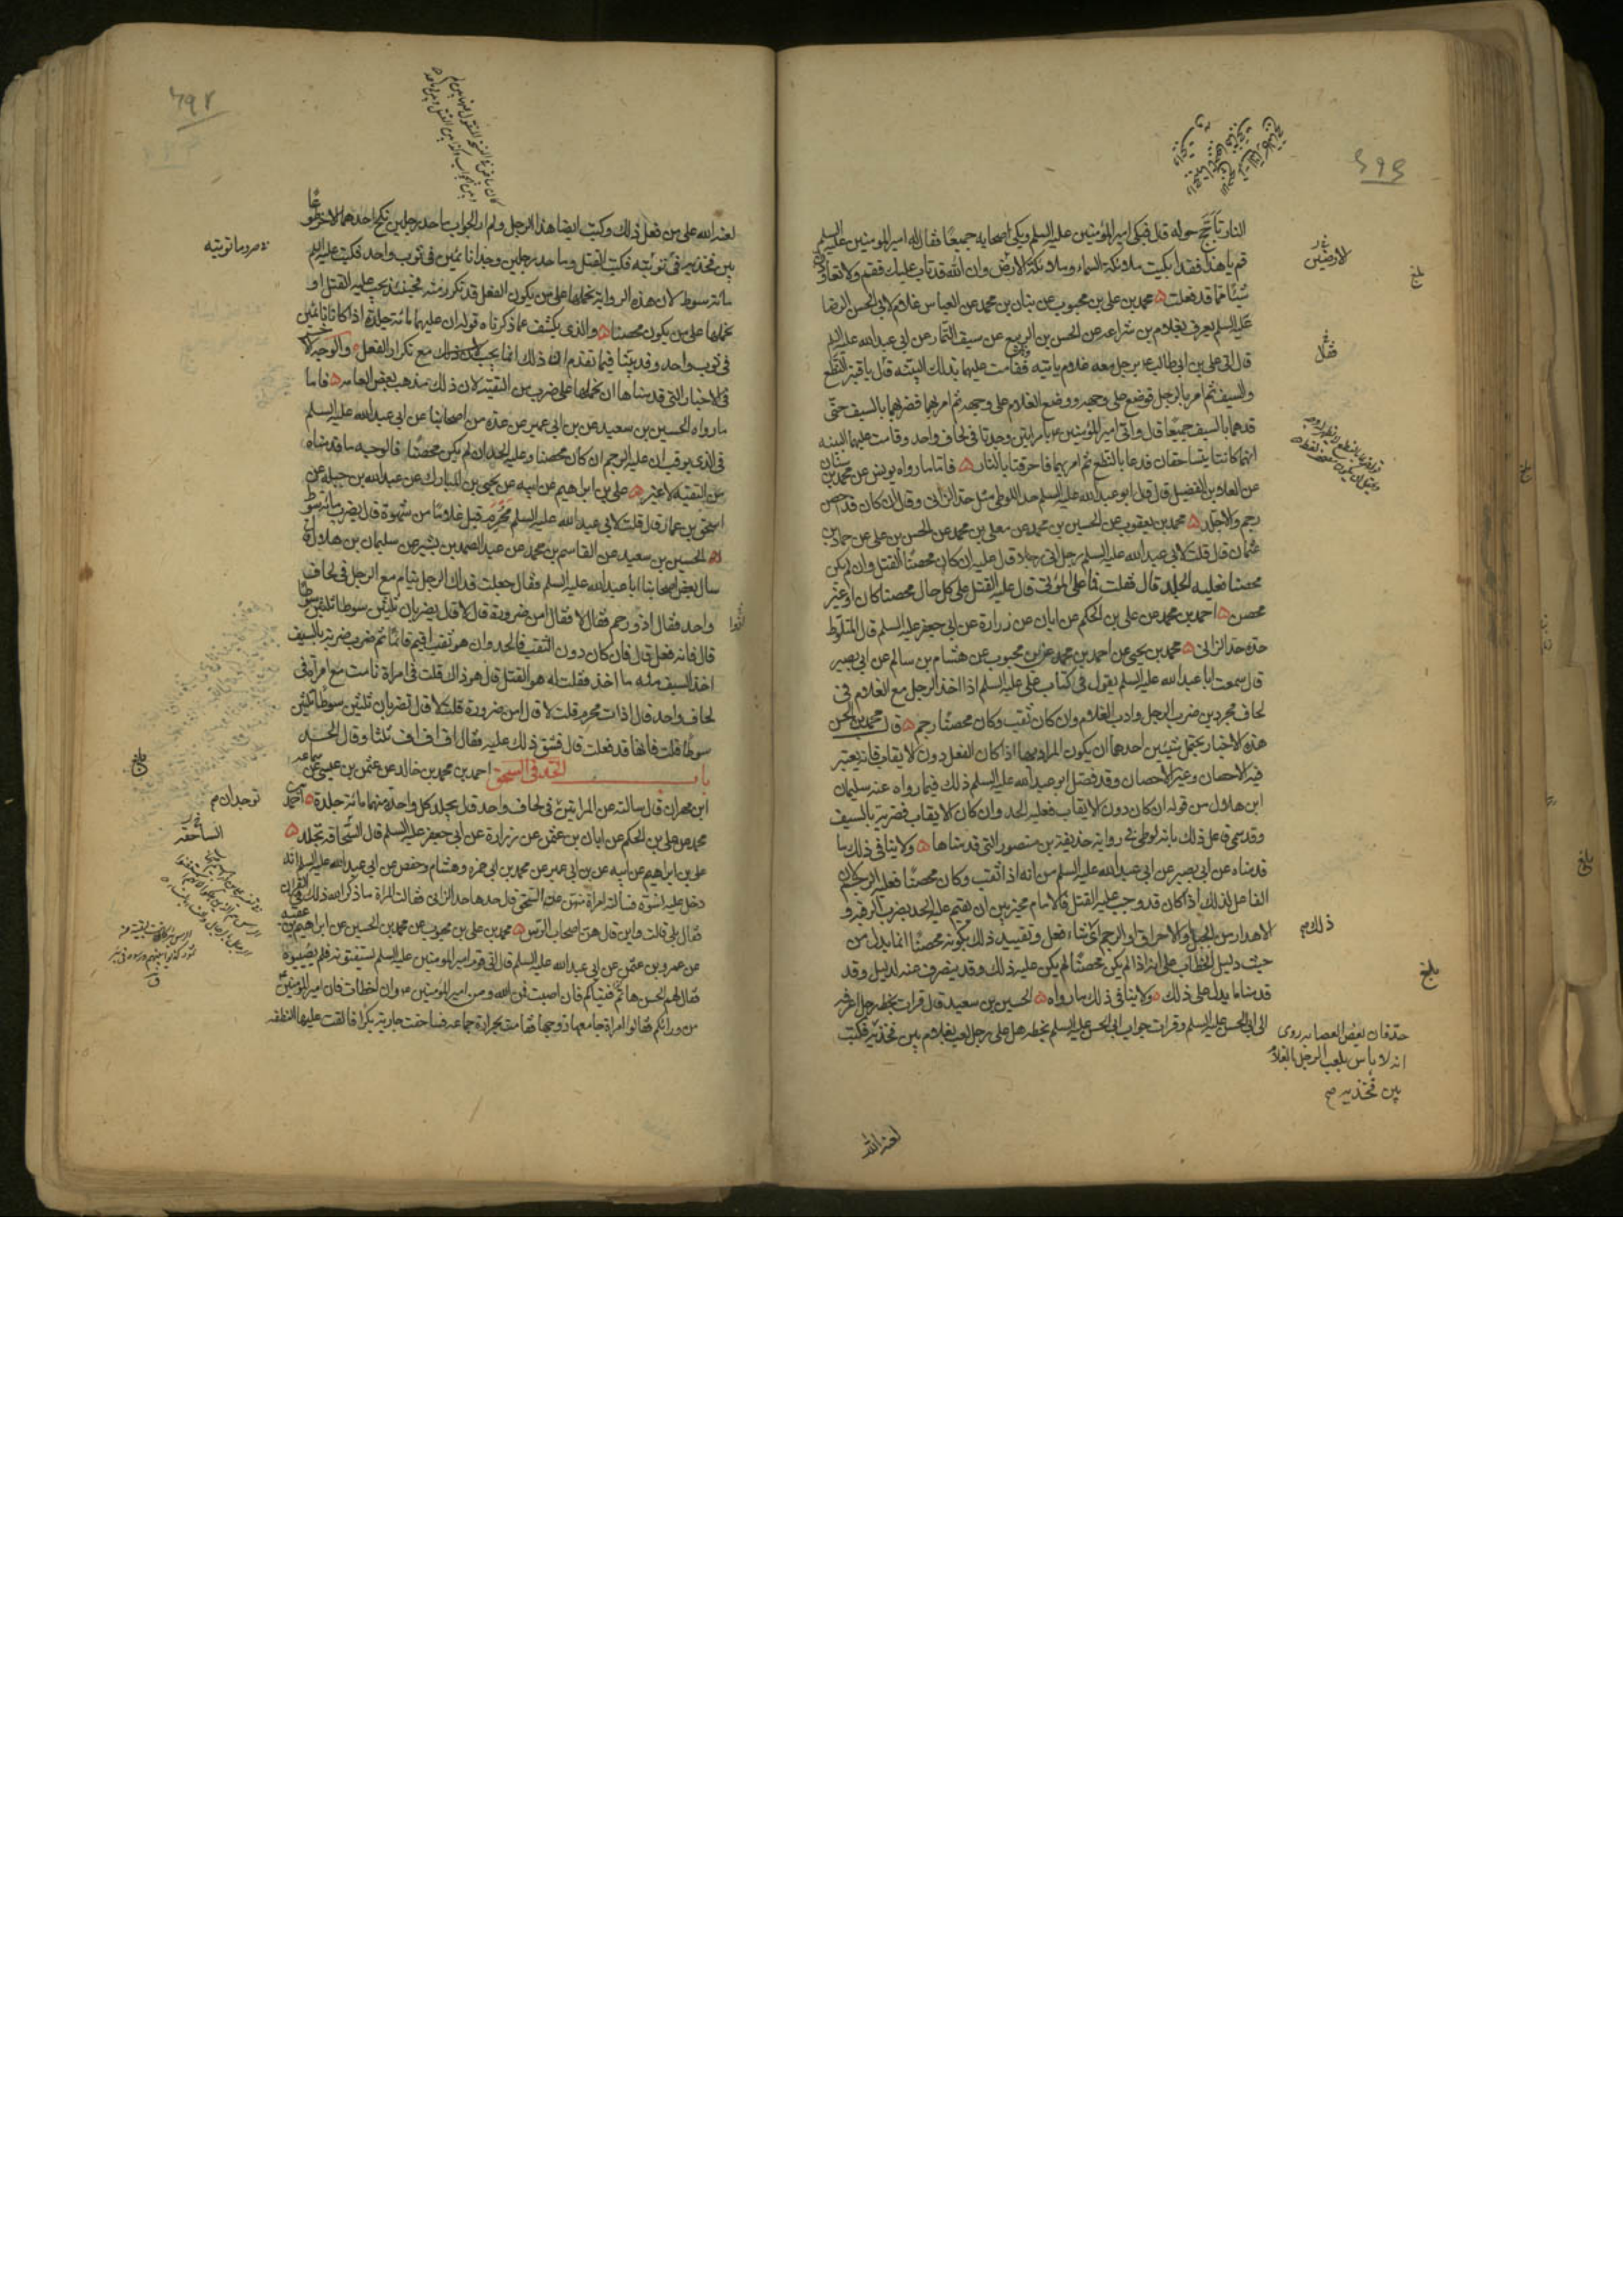 النار تاجج حوله قال فبكى امير المؤمنين عليه السلم وبكى اصحابه جميعا فقال له امير المؤمنين عليه السلم
قم يا هذا فقد ابكيت ملائكة السماء وملائكة الارض وان الله قد تاب عليك فقم ولا تعاودن
شيئا مما قد فعلت محمد بن علي بن محبوب عن بنان بن محمد عن العباس غلام لابي الحسن الرضا
عليه السلم يعرف بغلام بن شراعه عن الحسن بن الربيع عن سيف التمار عن ابي عبد الله عليه السلم
قال اتي علي بن ابي طالب ع برجل معه غلام ياتيه فقامت عليهما بذلك البينه قال يا قنبر النطع
والسيف ثم امر بالرجل فوضع على وجهه ووضع الغلام على وجهه ثم امر بهما فضربهما بالسيف حتى
قدهما بالسيف جميعا قال واتي امير المؤمنين ع بامراتين وجدتا في لحاف واحد وقامت عليهما البينه
انهما كانتا يتساحقان فدعا بالنطع ثم امر بهما فاحرقتا بالنار فاما ما رواه يونس عن محمد بن سنان
عن العلا بن الفضيل قال قال ابو عبد الله عليه السلم حد اللوطي مثل حد الزاني وقال ان كان قد احصن
رجم والا جلد محمد بن يعقوب عن الحسين بن محمد عن معلى بن محمد عن الحسن بن علي عن حماد بن
عثمان قال قلت لابي عبد الله عليه السلم رجل اتى رجلا قال عليه ان كان محصنا القتل وان لم يكن
محصنا فعليه الجلد قال فقلت فما على الموتى قال عليه القتل على كل حال محصنا كان او غير
محصن احمد بن محمد عن علي بن الحكم عن ابان عن زرارة عن ابي جعفر عليه السلم قال المتلوط
حده حد الزاني محمد بن يحيى عن احمد بن محمد عن بن محبوب عن هشام بن سالم عن ابي بصير
قال سمعت ابا عبد الله عليه السلم يقول في كتاب علي عليه السلم اذا اخذ الرجل مع الغلام في
لحاف مجردين ضرب الرجل وادب الغلام وان كان ثقب وكان محصنا رجم قال محمد بن الحسن
هذه الاخبار يحتمل شيئين احدهما ان يكون المراد بها اذا كان الفعل دون الايقاب فانه يعتبر
فيه الاحصان وغير الاحصان وقد فصل ابو عبد الله عليه السلم ذلك فيما رواه عنه سليمان
ابن هلال من قوله ان كان دون الايقاب فعليه الحد وان كان الايقاب فضربة بالسيف
وقد سمي فاعل ذلك بانه لوطي في رواية حذيفة بن منصور التي قدمناها ولا ينافي ذلك ما
قدمناه عن ابي بصير عن ابي عبد الله عليه السلم من انه اذا اثقب وكان محصنا فعليه الرجم لان
الفاعل لذلك اذا كان قد وجب عليه القتل فالامام مخير بين ان يقيم عليه الحد بضرب الرقبة و
الاهدار من الجبل والاحراق او الرجم اي شاء فعل وتقييد ذلك بكونه محصنا انما يدل من
حيث دليل الخطاب على انه اذا لم يكن محصنا لم يكن عليه ذلك وقد ينصرف عنه لدليل وقد
قدمنا ما يدل على ذلك ولا ينافي ذلك ما رواه الحسين بن سعيد قال قرات بخط رجل اعرفه
الى ابي الحسن عليه السلم وقرات جواب ابي الحسن عليه السلم بخطه هل على رجل لعب بغلام بين فخذيه فكتب
لعنه الله
الارضين
ذلك
حد فان بعض العصابه روى
انه لا باس بلعب الرجل بالغلام
بين فخذيه صح
بلغ
لعنه الله على من فعل ذلك وكتب ايضا هذا الرجل ولم ار الجواب ما حد رجلين نكح احدهما الاخر طوعا
بين فخذيه في توبته فكتب القتل وما حد رجلين وجدا نائمين في ثوب واحد فكتب عليه السلم
مائة سوط لان هذه الرواية نحملها على من يكون الفعل قد تكرر منه فحينئذ يجب عليه القتل او
نحملها على من يكون محصنا والذي يكشف عما ذكرناه قوله ان عليهما مائة جلدة اذا كانا نائمين
في ثوب واحد وقد بينا فيما تقدم ان ذلك انما يجب مع تكرار الفعل والوجه الاخر
في الاخبار التي قدمناها ان نحملها على ضرب من التقية لان ذلك مذهب بعض العامه فاما
ما رواه الحسين بن سعيد عن بن ابي عمير عن عدة من اصحابنا عن ابي عبد الله عليه السلم
في الذي يوقب ان عليه الرجم ان كان محصنا وعليه الحد ان لم يكن محصنا فالوجه ما قدمناه
من التقيه لا غير علي بن ابراهيم عن ابيه عن يحيى بن المبارك عن عبد الله بن جبله عن
اسحق بن عمار قال قلت لابي عبد الله عليه السلم محرم قبل غلاما من شهوة قال يضرب مائة سوط
الحسين بن سعيد عن القاسم بن محمد عن عبد الصمد بن بشير عن سليمان بن هلال قال
سال بعض اصحابنا ابا عبد الله عليه السلم فقال جعلت فداك الرجل ينام مع الرجل في لحاف
واحد فقال اذو رحم فقال لا فقال امن ضرورة قال لا قال يضربان ثلثين سوطا ثلثين سوطا
قال فانه فعل قال فان كان دون الثقب فالحد وان هو ثقب اقيم قائما ثم ضرب ضربة بالسيف
اخذ السيف منه ما اخذ فقلت له هو القتل قال هو ذاك قلت في امراة نامت مع امراة في
لحاف واحد قال اذات محرم قلت لا قال امن ضرورة قلت لا قال تضربان ثلثين سوطا ثلثين
سوطا قلت فانها قد فعلت قال فشق ذلك عليه فقال اف اف اف ثلثا وقال الحد
باب الحد في السحق احمد بن محمد بن خالد عن عثمن بن عيسى عن سماعه
ابن مهران قال سالته عن المراتين في لحاف واحد قال يجلد كل واحدة منهما مائة جلدة احمد بن
محمد عن علي بن الحكم عن ابان بن عثمن عن زرارة عن ابي جعفر عليه السلم قال السحاقة تجلد
علي بن ابراهيم عن ابيه عن بن ابي عمير عن محمد بن ابي حمزه وهشام وحفص عن ابي عبد الله عليه السلم انه
دخل عليه نسوة فسالته امراة منهن عن السحق قال حدها حد الزاني فقالت المراة ما ذكر الله ذلك في القران
فقال بلى قالت واين قال هن اصحاب الرس محمد بن علي بن محبوب عن محمد بن الحسين عن ابراهيم بن عقبه
عن عمرو بن عثمن عن ابي عبد الله عليه السلم قال اتى قوم امير المومنين عليه السلم يستفتونه فلم يصيبوه
فقال لهم الحسن هاتم فتياكم فان اصبت فمن الله ومن امير المؤمنين ع وان اخطات فان امير المؤمنين
من ورائكم فقالوا امراة جامعها زوجها فقامت بحرارة جماعه فساحقت جارية بكرا فالقت عليها النطفه
توجدان
الساحقه
بلغ